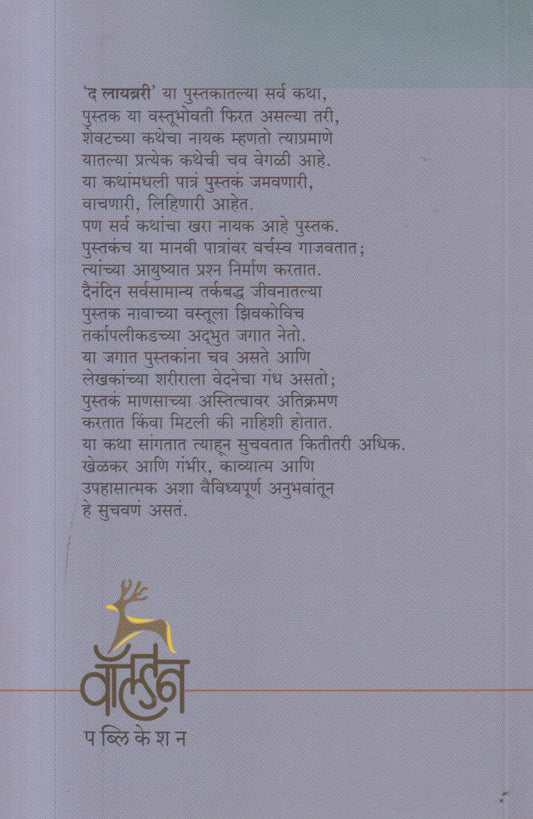 ‘द लायब्ररी’ या पुस्तकातल्या सर्व कथा,
पुस्तक या वस्तूभोवती फिरत असल्या तरी,
शेवटच्या कथेचा नायक म्हणतो त्याप्रमाणे
यातल्या प्रत्येक कथेची चव वेगळी आहे.
या कथांमधली पात्रं पुस्तकं जमवणारी,
वाचणारी, लिहिणारी आहेत.
पण सर्व कथांचा खरा नायक आहे पुस्तक.
पुस्तकंच या मानवी पात्रांवर वर्चस्व गाजवतात;
त्यांच्या आयुष्यात प्रश्न निर्माण करतात.
दैनंदिन सर्वसामान्य तर्कबद्ध जीवनातल्या
पुस्तक नावाच्या वस्तूला झिवकोविच
तर्कापलीकडच्या अद्‌भुत जगात नेतो.
या जगात पुस्तकांना चव असते आणि
लेखकांच्या शरीराला वेदनेचा गंध असतो;
पुस्तकं माणसाच्या अस्तित्वावर अतिक्रमण
करतात किंवा मिटली की नाहिशी होतात.
या कथा सांगतात त्याहून सुचवतात कितीतरी अधिक.
खेळकर आणि गंभीर, काव्यात्म आणि
उपहासात्मक अशा वैविध्यपूर्ण अनुभवांतून
हे सुचवणं असतं.
वॉल्डन
पब्लिकेशन